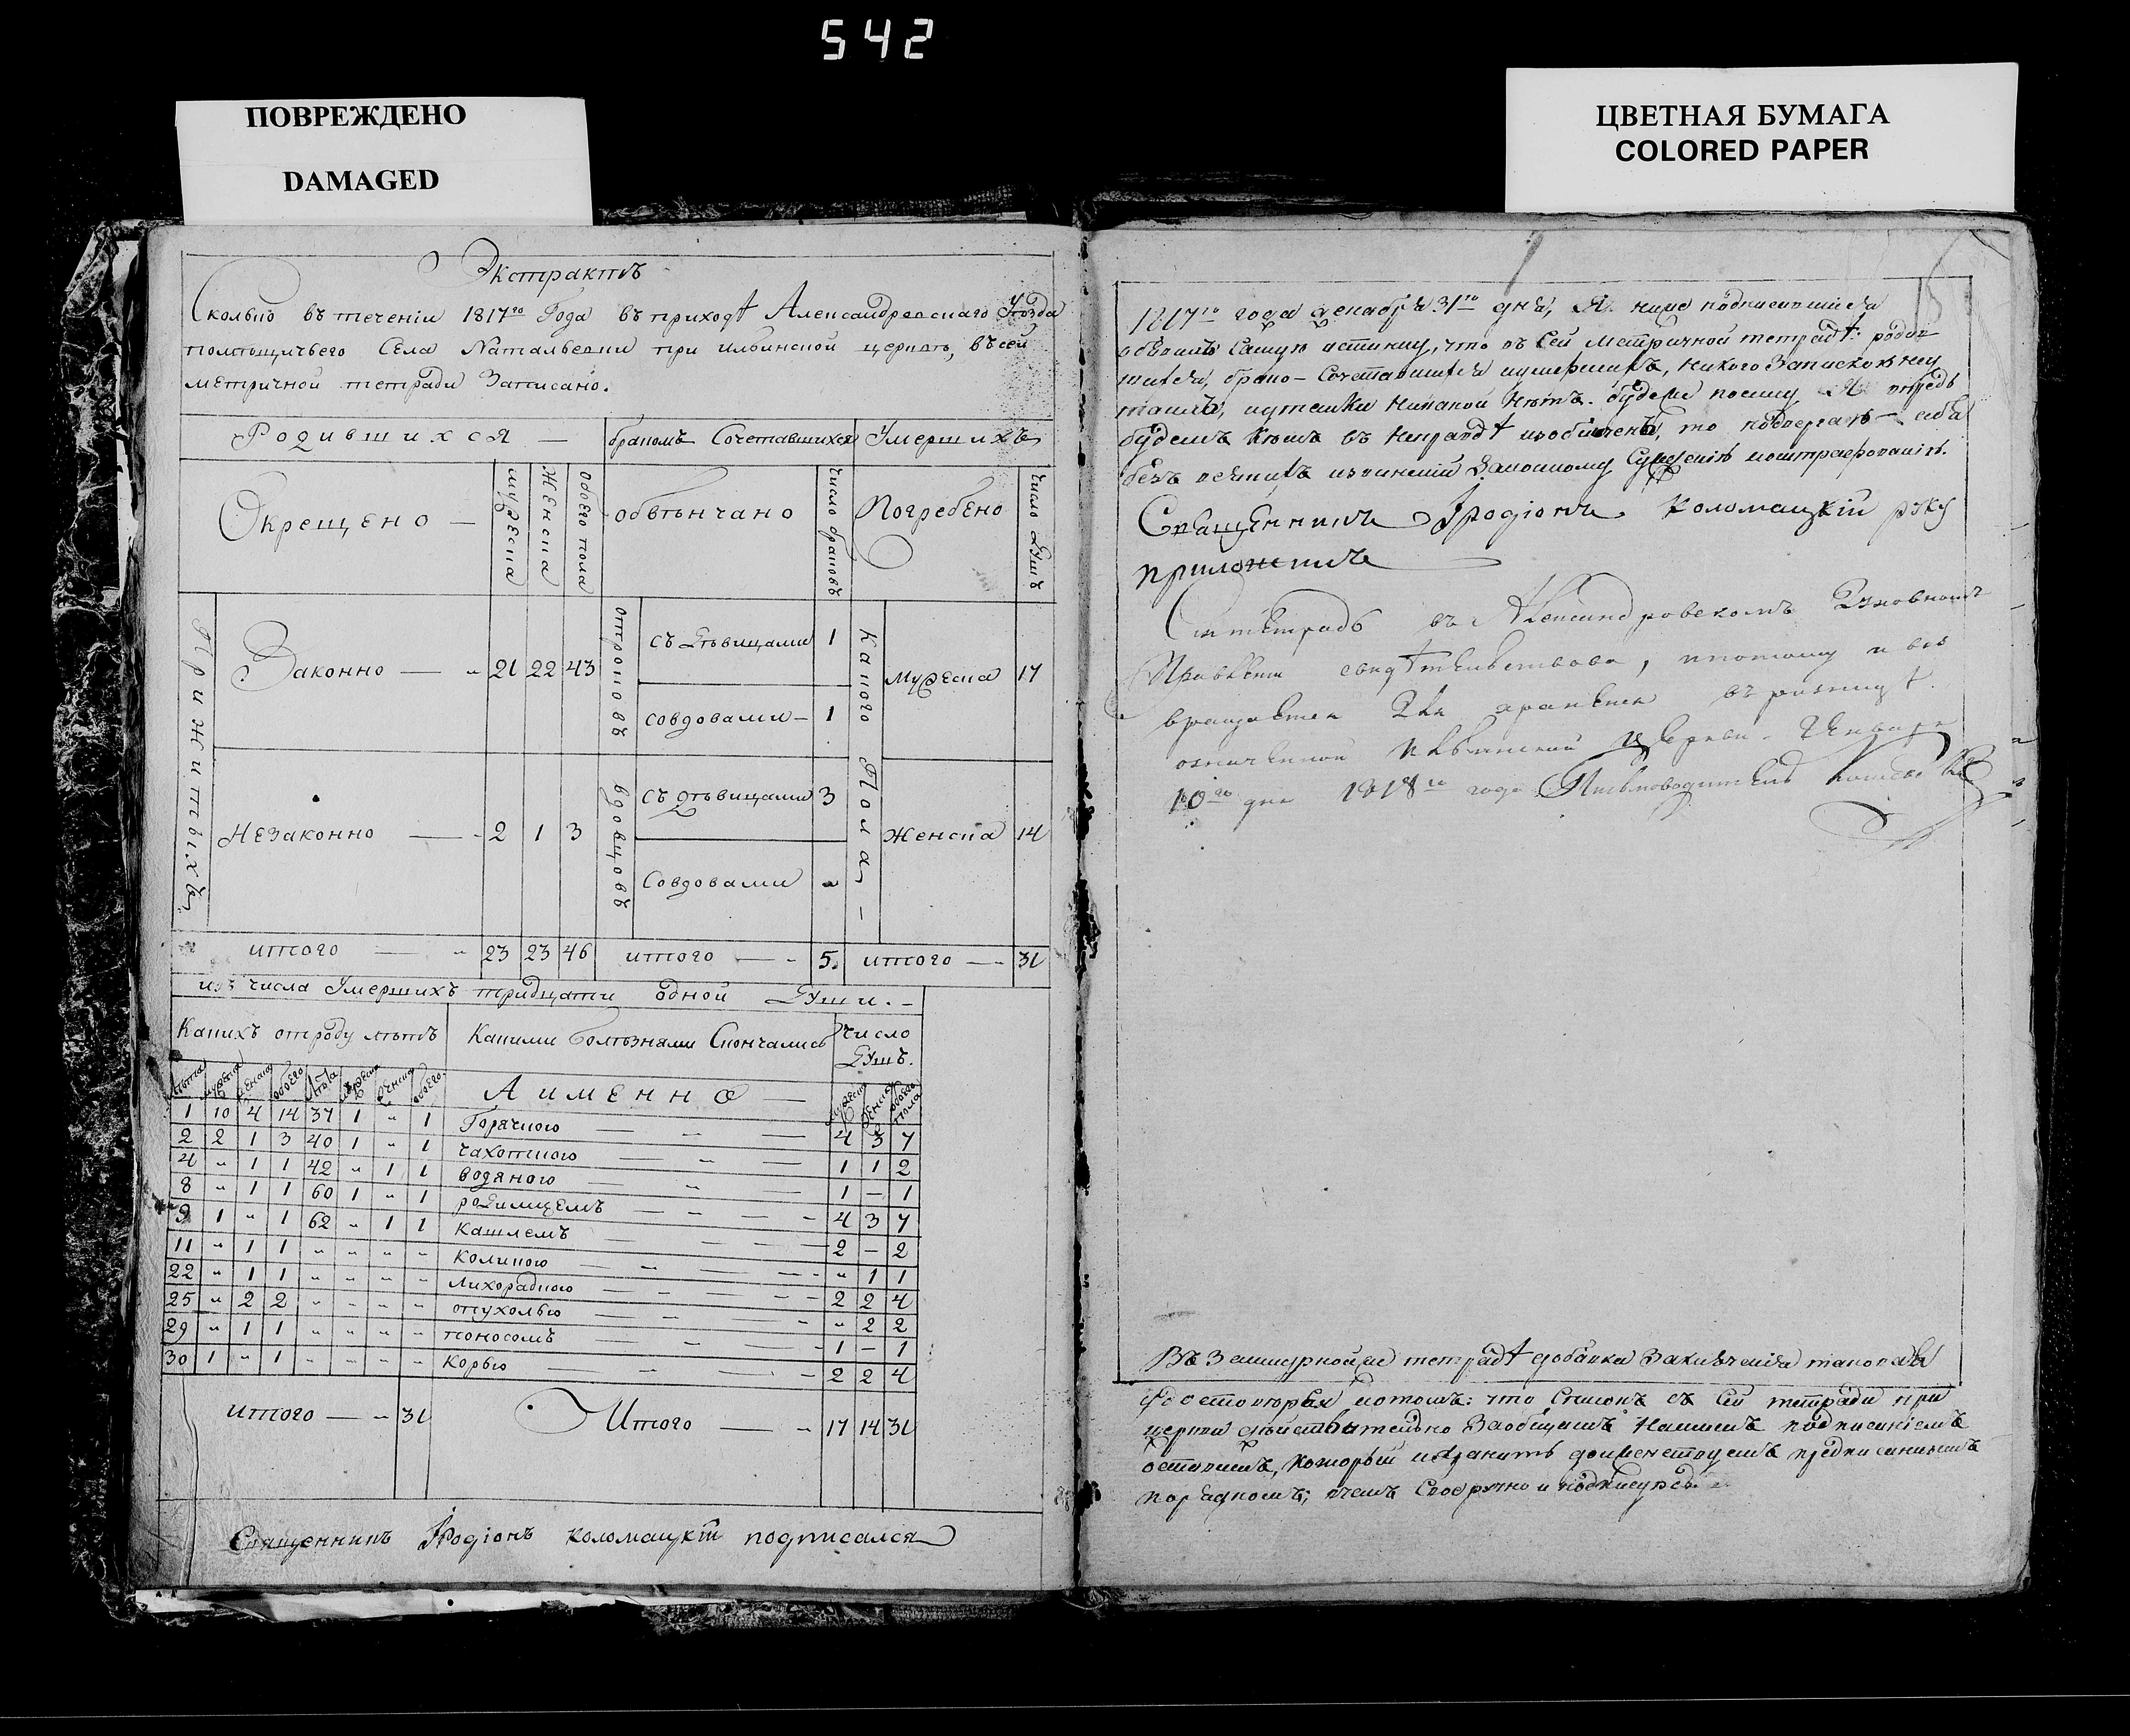 542
ПОВРЕЖДЕНО
DAMAGED
ЦВЕТНАЯ БУМАГА
COLORED PAPER
Экстрактъ
Сколько въ теченіи 1817го Года въ приходѣ Александровскаго Уѣзда
помѣщичьего Села Натальевки при ильинской церквѣ, въсей
метричной тетради Записано.
Родившихся — бракомъ Сочетавшихся Умершихъ
Окрещено — мужеска Женска обоего пола обвѣнчано число браковъ Погребено число Душъ
Прижитыхъ
Законно — 21 22 43 отроковъ съ Дѣвицами 1 Какого Пола — мужеска 17
совдовами — 1
Незаконно — 2 1 3 вдовцовъ съ дѣвицами 3 Женска 14
Совдовами "
итого — 23 23 46 итого — 5. итого — 31
изъ числа Умершихъ тридцати одной Души. —
Какихъ отроду лѣтъ Какими болѣзнями Скончались Число Душъ.
лѣта мужеска женска обоего лѣта мужеска женска обоего Аименно — мужеска женска обоего пола
1 10 4 14 37 1 " 1 Горячкою — 4 3 7
2 2 1 3 40 1 " 1 чахоткою — 1 1 2
4 " 1 1 42 " 1 1 водяною — 1 — 1
8 " 1 1 60 1 " 1 родимцемъ — 4 3 7
9 1 " 1 62 " 1 1 Кашлемъ — 2 — 2
11 " 1 1 " " " " Коликою — " 1 1
22 " 1 1 " " " " лихорадкою — 2 2 4
25 " 2 2 " " " " опухолью — " 2 2
29 " 1 1 " " " " поносомъ — 1 — 1
30 1 " 1 " " " " Корью — 2 2 4
итого — 31 Итого — 17 14 31
Священникъ Иродіонъ Коломацкій подписался
1817го года декабря 31го дня, Я ниже подписавшійся
объявилъ Самую истинну, что въ Сей метричной тетрадѣ: родив
шихся, брако-Сочетавшихся иумершихъ, никого Запискою неу
таилъ, иутайки никакой нѣтъ. будеже посему Я впредь
будемъ кѣмъ въ неправдѣ изобличенъ, то подвергаю — себя
безъ всякихъ извиненій Законному Сужденію иоштрафованію.
Священникъ Іродіонъ Коломацкій руку
приложилъ
Сія тетрадь въ Александровскомъ Духовномъ
Правленіи свидѣтельствована, ипотому и воз
вращается для храненія въ ризницѣ
означенной Ильинской Церкви. Генваря
10го дня 1818го года. Письмоводитель
тетрадѣ добавки Заключенія таковая
потомъ: что Списокъ съ Сей тетради при
церкви дѣйствительно Заобщимъ Нашимъ подписаніемъ
оставленъ, который ихранить долженствуемъ предписаннымъ
порядкомъ; вчемъ Своеручно и подписуюсь.